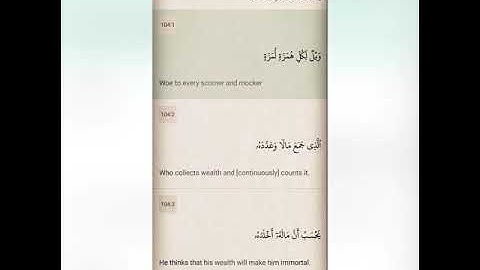 104:1
وَيْلٌ لِّكُلِّ هُمَزَةٍ لُّمَزَةٍ
Woe to every scorner and mocker
104:2
ٱلَّذِى جَمَعَ مَالًا وَعَدَّدَهُۥ
Who collects wealth and [continuously] counts it.
104:3
يَحْسَبُ أَنَّ مَالَهُۥٓ أَخْلَدَهُۥ
He thinks that his wealth will make him immortal.